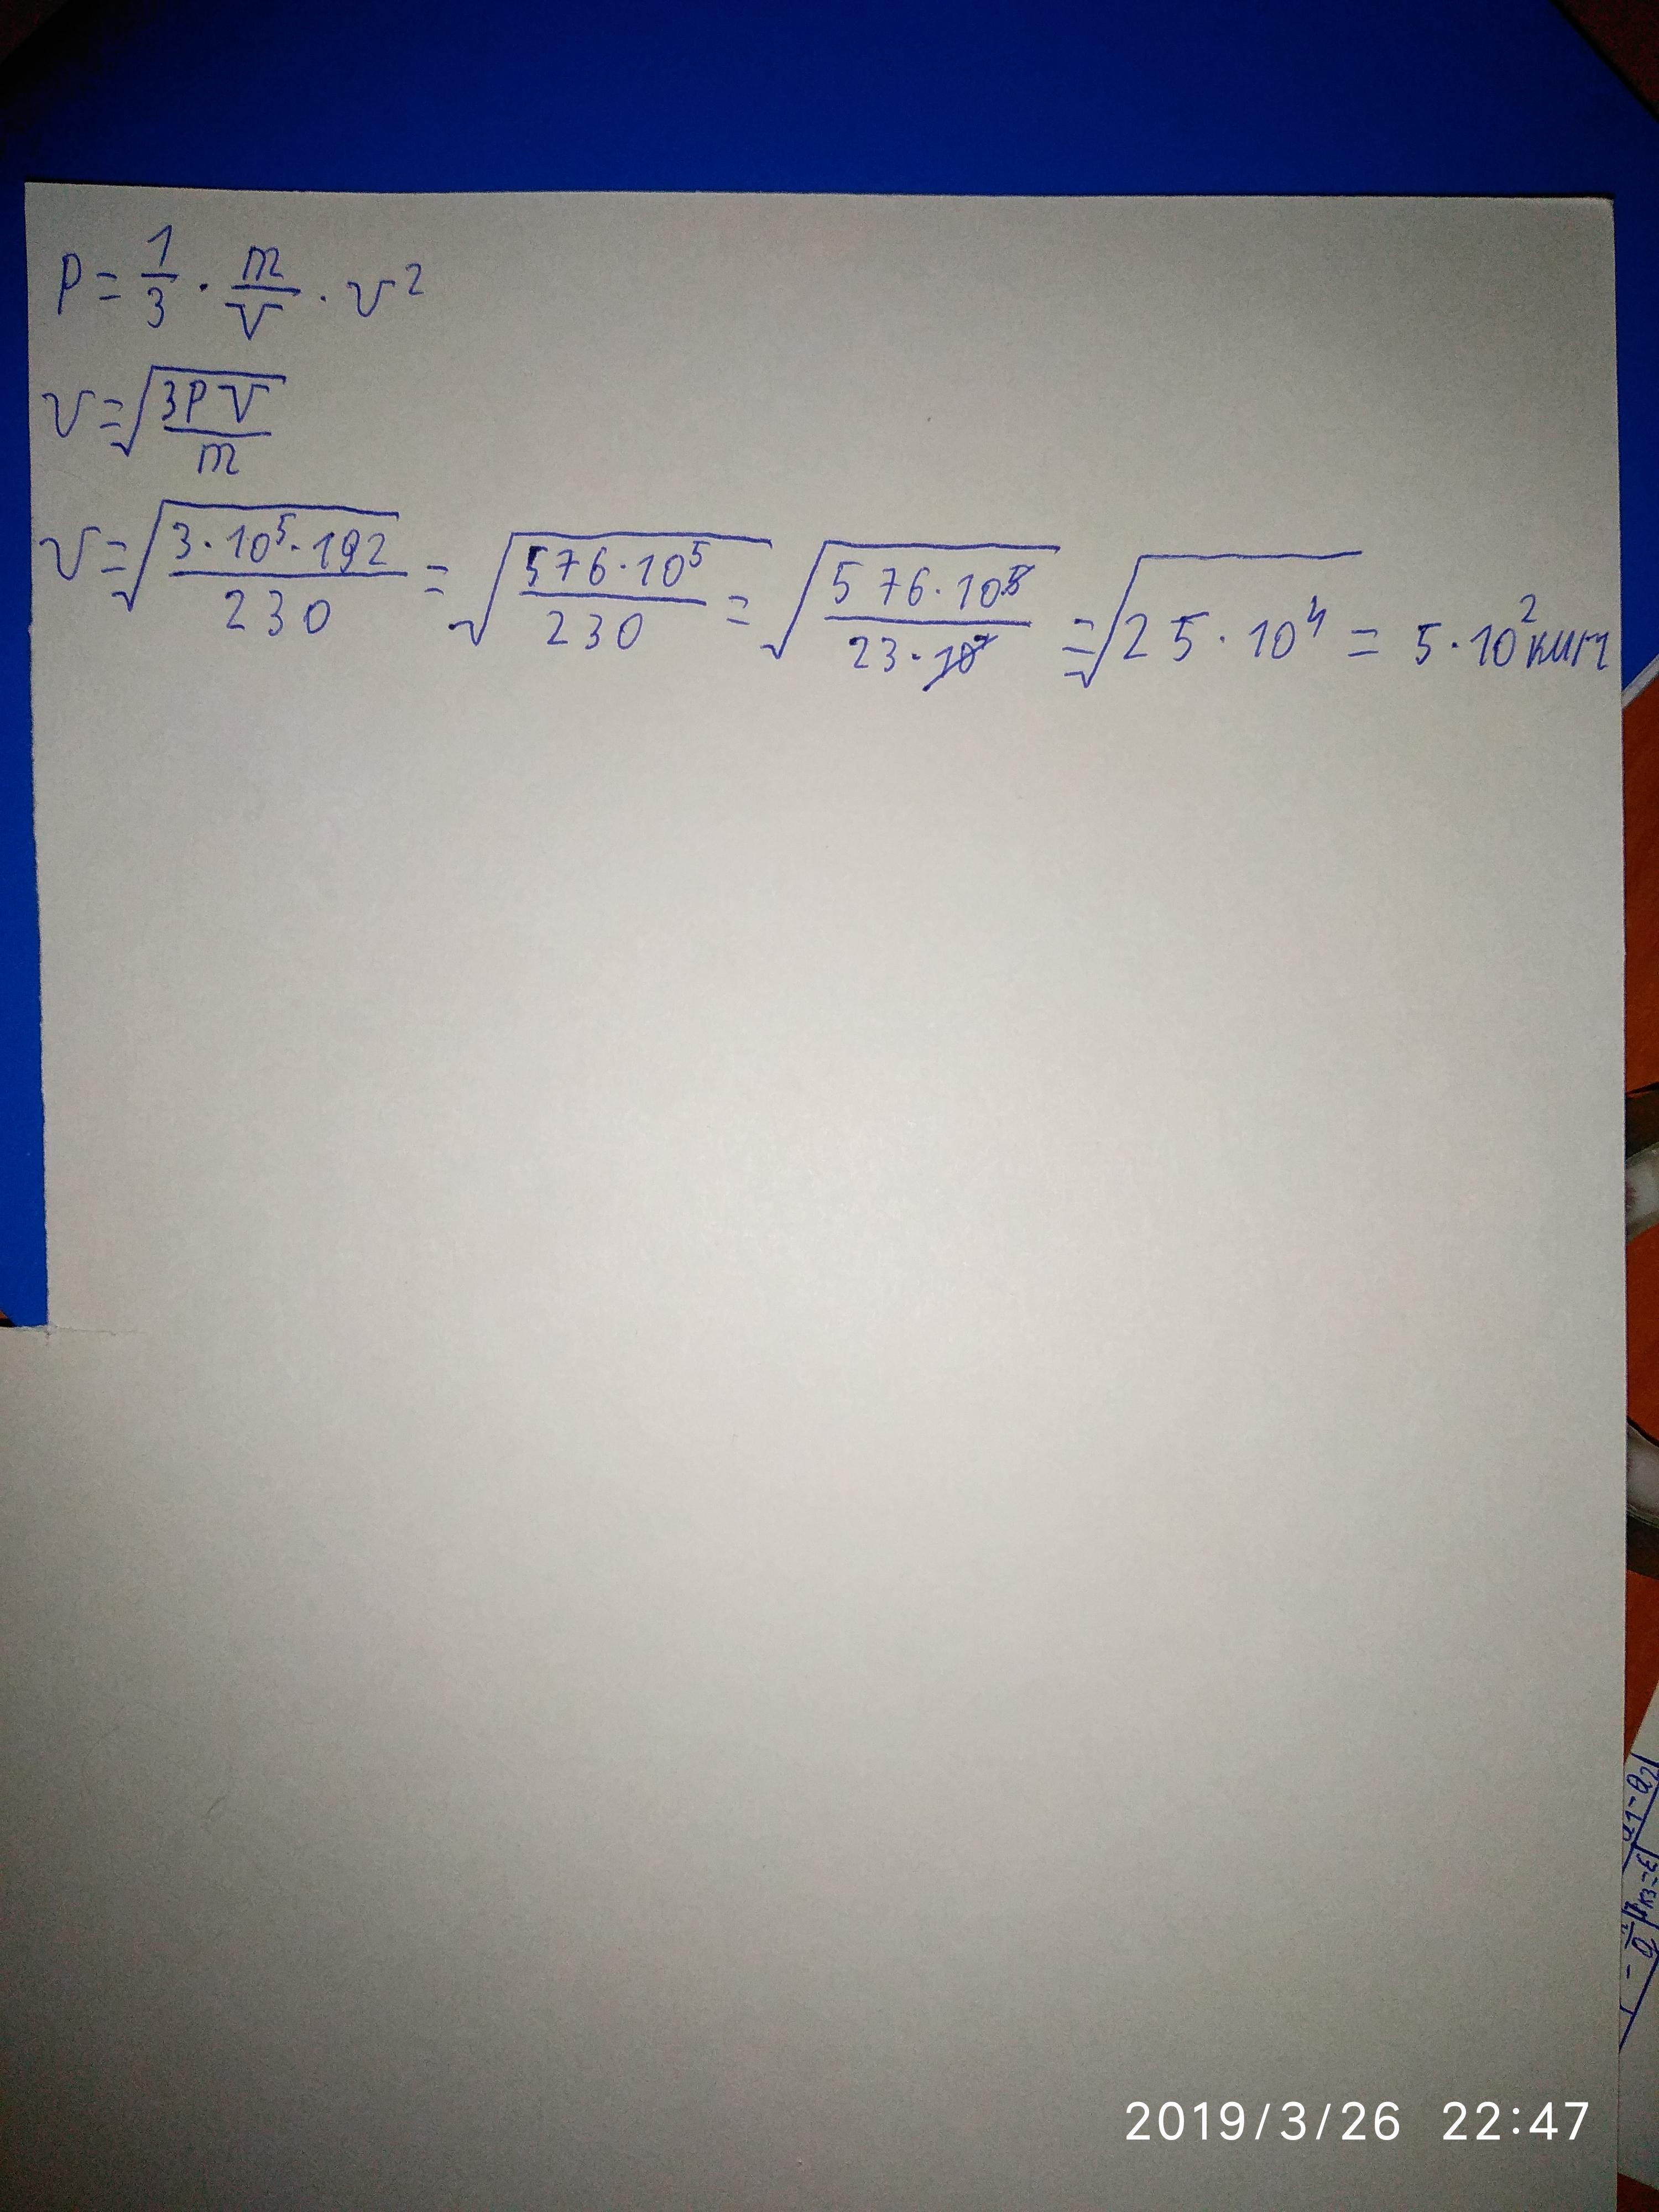 P = 1/3 · m/V · v²
v = √(3PV/m)
v = √(3·10⁵·192/230) = √(576·10⁵/230) = √(576·10⁵/23·10) = √25·10⁴ = 5·10²
2019/3/26 22:47